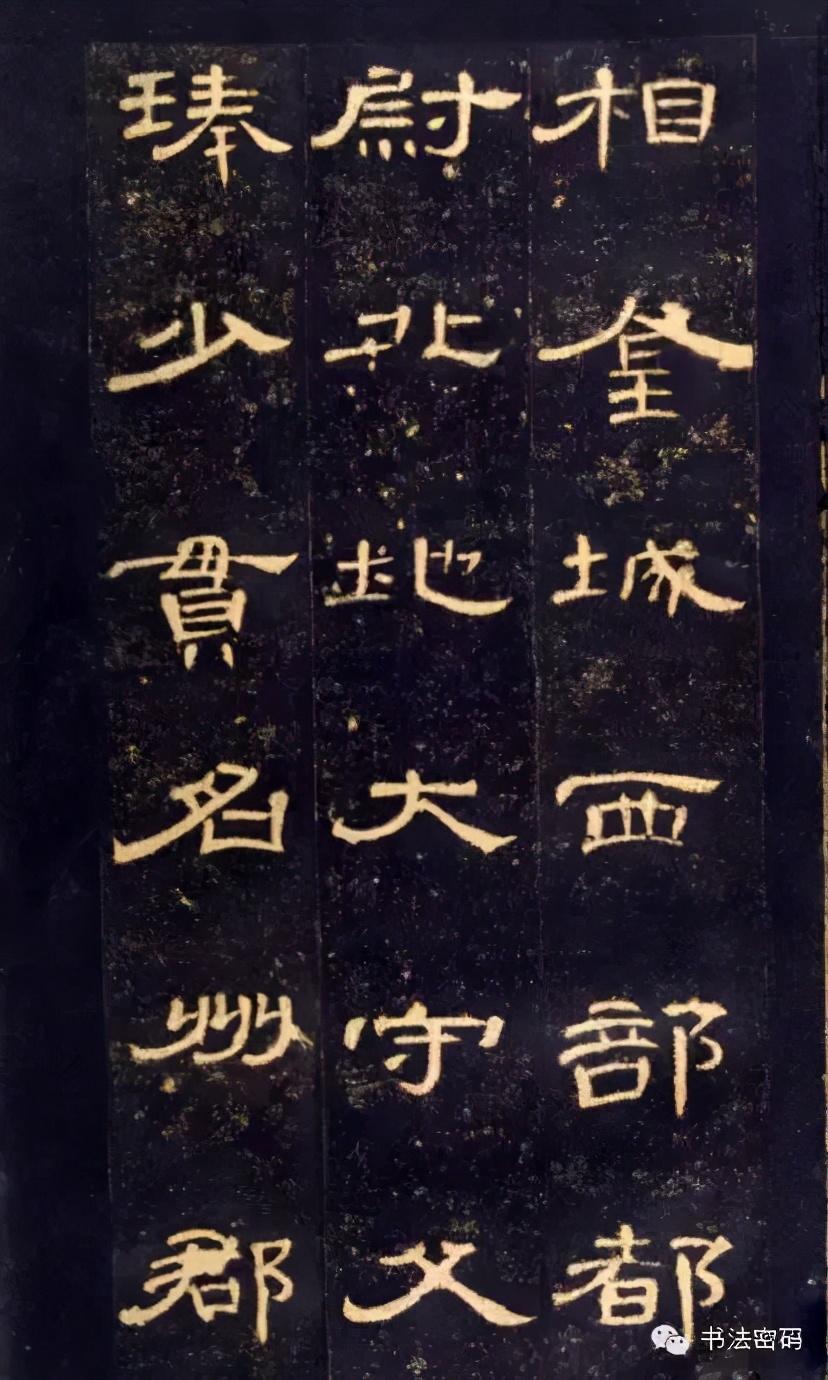 相金城西部都
尉北地大守父
琫少貫名州郡
书法密码